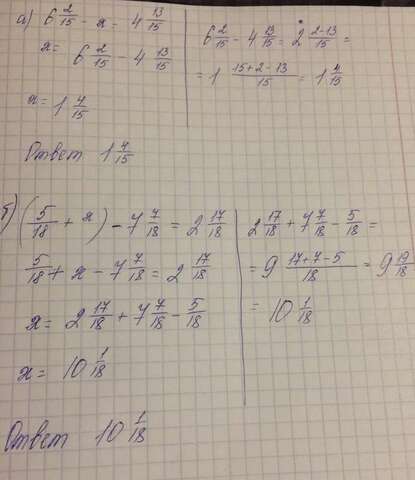 а) 6 2/15 - x = 4 13/15
x = 6 2/15 - 4 13/15
x = 1 4/15
6 2/15 - 4 13/15 = 2 2-13/15 =
= 1 15+2-13/15 = 1 4/15
Ответ 1 4/15
б) (5/18 + x) - 7 7/18 = 2 17/18
5/18 + x - 7 7/18 = 2 17/18
x = 2 17/18 + 7 7/18 - 5/18
x = 10 1/18
2 17/18 + 7 7/18 - 5/18 =
= 9 17+7-5/18 = 9 19/18
= 10 1/18
Ответ 10 1/18